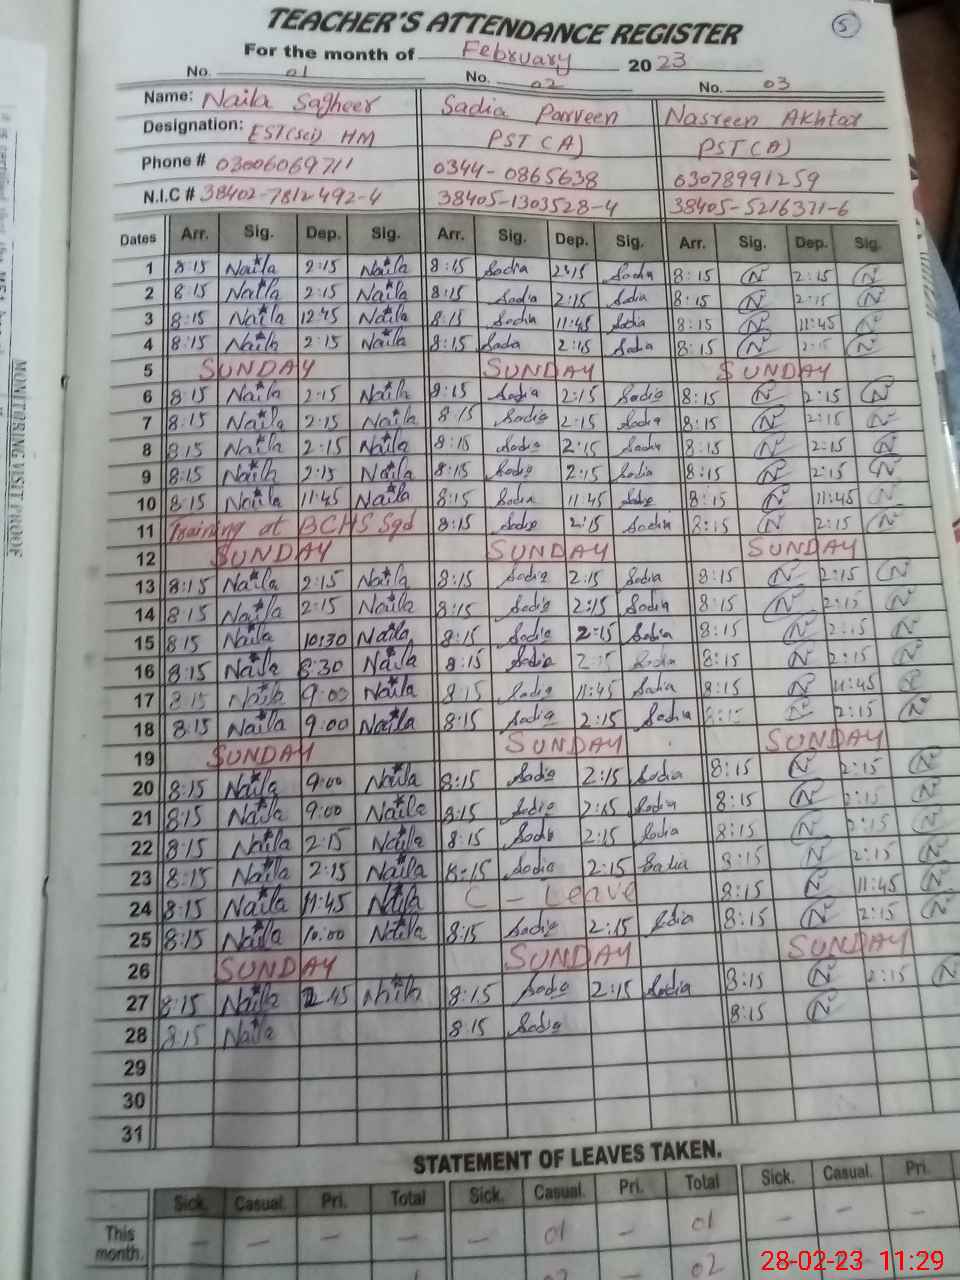 TEACHER'S ATTENDANCE REGISTER
5
For the month of February 2023
No. 01 No. 02 No. 03
Name: Naila Sagheer Sadia Parveen Nasreen Akhtar
Designation: EST(Sci) HM PST(A) PST(A)
Phone # 03006069711 0344-0865638 03078991259
N.I.C # 38402-7812492-4 38405-1303528-4 38405-5216371-6
Dates Arr. Sig. Dep. Sig. Arr. Sig. Dep. Sig. Arr. Sig. Dep. Sig.
1 8:15 Naila 2:15 Naila 8:15 Sadia 2:15 Sadia 8:15 N 2:15 N
2 8:15 Naila 2:15 Naila 8:15 Sadia 2:15 Sadia 8:15 N 2:15 N
3 8:15 Naila 12:45 Naila 8:15 Sadia 11:45 Sadia 8:15 N 11:45 N
4 8:15 Naila 2:15 Naila 8:15 Sadia 2:15 Sadia 8:15 N 2:15 N
5 SUNDAY SUNDAY SUNDAY
6 8:15 Naila 2:15 Naila 8:15 Sadia 2:15 Sadia 8:15 N 2:15 N
7 8:15 Naila 2:15 Naila 8:15 Sadia 2:15 Sadia 8:15 N 2:15 N
8 8:15 Naila 2:15 Naila 8:15 Sadia 2:15 Sadia 8:15 N 2:15 N
9 8:15 Naila 2:15 Naila 8:15 Sadia 2:15 Sadia 8:15 N 2:15 N
10 8:15 Naila 11:45 Naila 8:15 Sadia 11:45 Sadia 8:15 N 11:45 N
11 Training at BCHS Sgd 8:15 Sadia 2:15 Sadia 8:15 N 2:15 N
12 SUNDAY SUNDAY SUNDAY
13 8:15 Naila 2:15 Naila 8:15 Sadia 2:15 Sadia 8:15 N 2:15 N
14 8:15 Naila 2:15 Naila 8:15 Sadia 2:15 Sadia 8:15 N 2:15 N
15 8:15 Naila 10:30 Naila 8:15 Sadia 2:15 Sadia 8:15 N 2:15 N
16 8:15 Naila 8:30 Naila 8:15 Sadia 2:15 Sadia 8:15 N 2:15 N
17 8:15 Naila 9:00 Naila 8:15 Sadia 11:45 Sadia 8:15 N 11:45
18 8:15 Naila 9:00 Naila 8:15 Sadia 2:15 Sadia 8:15 N 2:15 N
19 SUNDAY SUNDAY SUNDAY
20 8:15 Naila 9:00 Naila 8:15 Sadia 2:15 Sadia 8:15 N 2:15 N
21 8:15 Naila 9:00 Naila 8:15 Sadia 2:15 Sadia 8:15 N 2:15 N
22 8:15 Naila 2:15 Naila 8:15 Sadia 2:15 Sadia 8:15 N 2:15 N
23 8:15 Naila 2:15 Naila 8:15 Sadia 2:15 Sadia 8:15 N 2:15 N
24 8:15 Naila 11:45 Naila C - Leave 8:15 N 11:45 N
25 8:15 Naila 10:00 Naila 8:15 Sadia 2:15 Sadia 8:15 N 2:15 N
26 SUNDAY SUNDAY SUNDAY
27 8:15 Naila Naila 8:15 Sadia 2:15 Sadia 8:15 N 2:15 N
28 8:15 Naila 8:15 Sadia 8:15 N
29
30
31
STATEMENT OF LEAVES TAKEN.
Sick. Casual. Pri. Total Sick. Casual. Pri. Total Sick. Casual. Pri.
This month. - - - - - 01 - 01 - - -
02
MONITORING VISIT PROOF
28-02-23 11:29